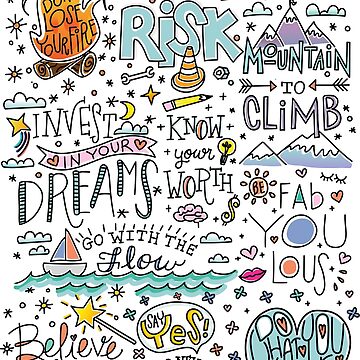 DON'T
LOSE
YOUR FIRE
RISK
MOUNTAIN
TO
CLIMB
INVEST
IN YOUR
DREAMS
KNOW
your
WORTH
BE
FAb
YOU
LOUS
GO WITH THE
flow
Believe
SAY
Yes!
DO
WHAT
YOU